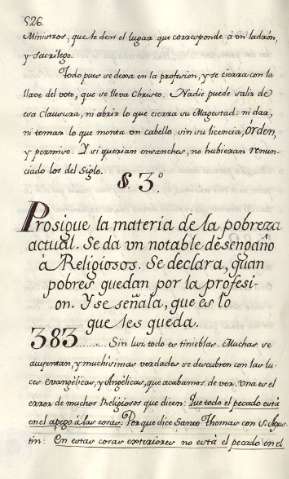 526.
Ministros, que le den el lugar que corresponde a un ladrón,
y sacrílego.
Todo pues se dexa en la profesion, y se cierra con la
llave del voto, que se lleva Christo. Nadie puede salir de
esa Clausura, ni abrir lo que cierra su Magestad: ni dar,
ni tomar lo que monta un cabello sin su licencia, órden,
y permiso. Y si querian ensanches, no hubieran renun-
ciado los del Siglo.
§. 3.º
Prosigue la materia de la pobreza
actual. Se da vn notable desengaño
à Religiosos. Se declara, quan
pobres quedan por la profesi-
on. Y se señala, que es lo
que les queda.
383...... Sin luz todo es tinieblas. Muchas se
auyentan, y muchisimas verdades se descubren con las lu-
ces evangélicas, y Angélicas, que acabamos de ver. Una es el
error de muchos Religiosos que dicen: Que todo el pecado está
en el apego à las cosas. Porque dice Santo Thomas con S. Agus-
tin: En estas cosas exteriores no está el pecado en el